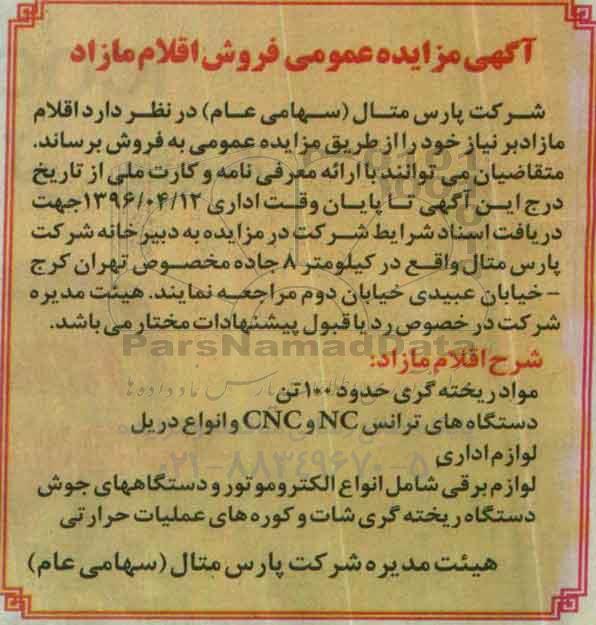 آگهی مزایده عمومی فروش اقلام مازاد
شرکت پارس متال (سهامی عام) در نظر دارد اقلام
مازاد بر نیاز خود را از طریق مزایده عمومی به فروش برساند.
متقاضیان می توانند با ارائه معرفی نامه و کارت ملی از تاریخ
درج این آگهی تا پایان وقت اداری ۱۳۹۶/۰۴/۱۲ جهت
دریافت اسناد شرایط شرکت در مزایده به دبیرخانه شرکت
پارس متال واقع در کیلومتر ۸ جاده مخصوص تهران کرج
- خیابان عبیدی خیابان دوم مراجعه نمایند. هیئت مدیره
شرکت در خصوص رد یا قبول پیشنهادات مختار می باشد.
ParsNamadData
شرح اقلام مازاد:
مواد ریخته گری حدود ۱۰۰ تن
دستگاه های ترانس NC و CNC و انواع دریل
لوازم اداری
۰۲۱-۸۸۳۴۹۶۷۰-۵
لوازم برقی شامل انواع الکتروموتور و دستگاههای جوش
دستگاه ریخته گری شات و کوره های عملیات حرارتی
هیئت مدیره شرکت پارس متال (سهامی عام)